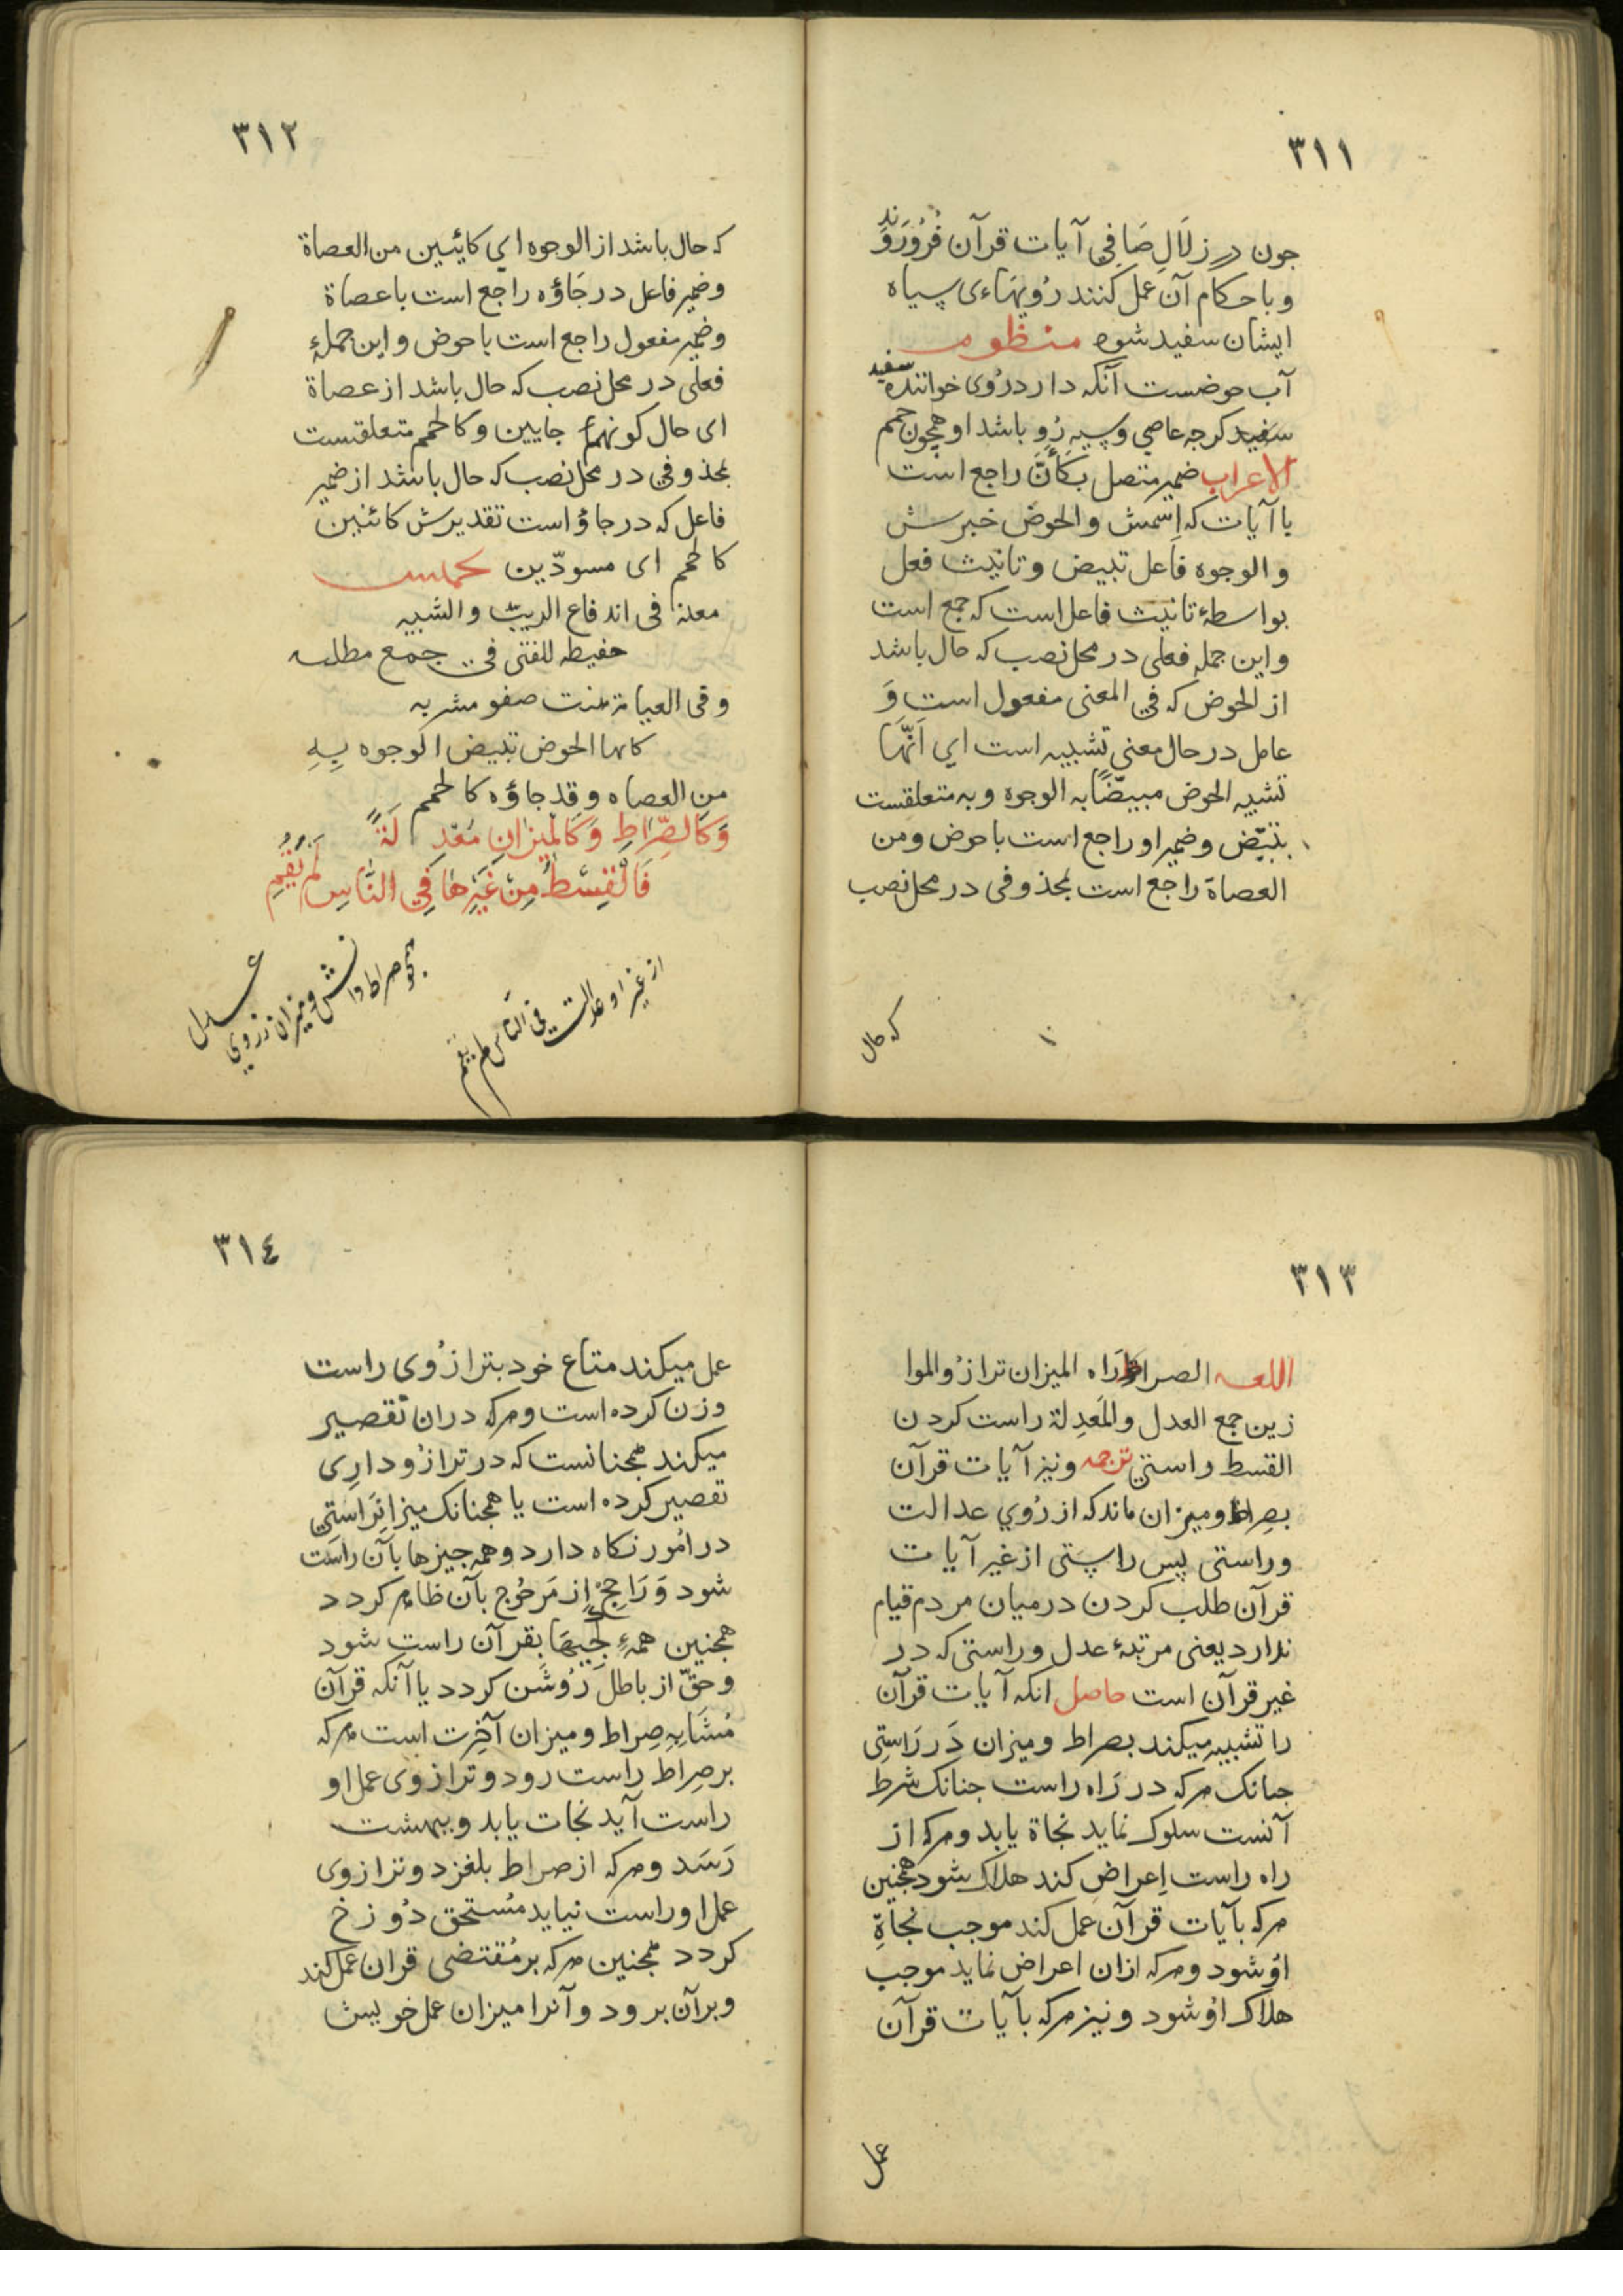 ٣١١
جون در زلَالِ صَافِي آيات قرآن فُرُورَوَند
و باحكام آن عمل كنند رُويهَاءى سياه
ايشان سفيد شود منظوم
آب حوضست آنكه دارد رُوى خواننده سفيد
كرجه عاصي و سيه رُو باشد او همچون حمم
الاعراب ضمير متصل بكَأَنَّ راجع است
با آيات كه اِسمش و الحوض خبرش
و الوجوه فاعل تبيض و تانيث فعل
بواسطهٔ تانيث فاعل است كه جمع است
و اين جمله فعلى در محل نصب كه حال باشد
از الحوض كه في المعنى مفعول است وَ
عامل در حال معني تشبيه است اي اَنَّهَا
تشبه الحوض مبيضًا به الوجوه و به متعلقست
بتبيّض و ضمير او راجع است با حوض و من
العصاة راجع است بمحذوفى در محل نصب
كه حال
٣١٢
كه حال باشد از الوجوه اي كائيين من العصاة
و ضمير فاعل در جَاؤه راجع است با عصاة
و ضمير مفعول راجع است با حوض و اين جملهٔ
فعلى در محل نصب كه حال باشد از عصاة
اى حال كونهم جايين و كالحمم متعلقست
بمحذوفي در محل نصب كه حال باشد از ضمير
فاعل كه در جاؤ است تقديرش كائنين
كالحمم اى مسودّين
معنه فى اندفاع الريب و الشبيه
حفيظه للفتى فى جمع مطلبه
و فى صفو مشربه
كانها الحوض تبيض الوجوه بِهِ
من العصاه و قد جاؤه كالحمم
وَكَالصِّرَاطِ وَكَالْمِيزَانِ مَعْدِلَةً
فَالْقِسْطُ مِنْ غَيْرِهَا فِي النَّاسِ لَمْ يَقُمِ
همچو صراط و ميزان از روي عدل
از غير او عدالت في الناس لم يقم
٣١٣
اللغه الصراط رَاه الميزان ترازُو الموا
زين جمع العدل و المَعدِلة راست كردن
القسط راستي ترجمه و نيز آيات قرآن
بصِراط و ميزان ماند كه از رُوي عدالت
و راستى پس راستى از غير آيات
قرآن طلب كردن در ميان مردم قيام
ندارد يعنى مرتبهٔ عدل و راستى كه در
غير قرآن است حاصل انكه آيات قرآن
را تشبيه ميكند بصراط و ميزان دَر رَاستِى
جنانك هركه در رَاه راست جنانك شرط
آنست سلوك نمايد نجاة يابد و هركه از
راه راست اِعراض كند هلاك شود همجنين
هركه بآيات قرآن عمل كند موجب نجَاةِ
اوُ شود و هركه ازان اعراض نمايد موجب
هلاك اوُ شود و نيز هركه بآيات قرآن
عمل
٣١٤
عمل ميكند متاع خود بترازُوى راست
وزن كرده است و هركه دران تقصير
ميكند همجنانست كه در ترازُو دارِى
تقصير كرده است يا همجنانك ميزانرَاسَتِي
در امُور نكاه دارد و همه جيزها بآن راست
شود وَ رَاجِحْ از مَرجُوح بآن ظاهر كردد
همجنين همهٔ بقرآن راست شود
و حقّ از باطل رُوشَن كردد يا آنكه قرآن
مُشَابِهِ صِراط و ميزان آخِرت است هركه
بر صِراط راست رود و ترازوى عمل او
راست آيد نجات يابد و ببهشت
رَسَد و هركه از صراط بلغزد و ترازوى
عمل او راست نيايد مُستحق دُوزخ
كردد همجنين هركه بر مُقتضى قران عمل كند
و برآن برود و آنرا ميزان عمل خويش